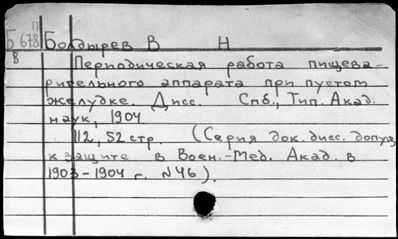 П
Б 678 Болдырев В Н
8
Периодическая работа пищева-
рительного аппарата при пустом
желудке. Дисс. Спб., Тип. Акад.
наук, 1904
112, 52 стр. (Серия док. дисс. допущ.
к защите в Воен.-Мед. Акад. в
1903-1904 г. N46).